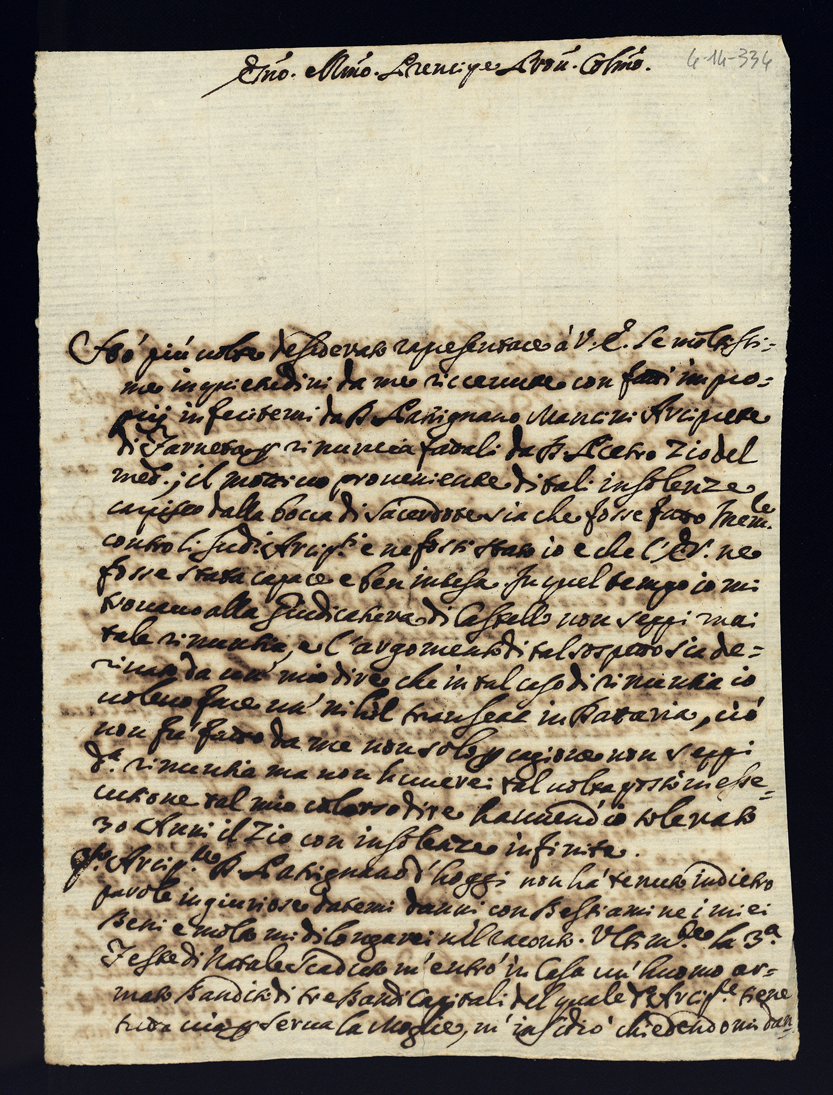 Em̃o. e Rm̃o. Prencipe Pron̄. Colm̃o. 4-14-334
Hò più volte desiderato rapresentare à V. E. le moltissi=
me inquietudini da me riccevute con fatti impro=
prij infecitemi da D. Latignano Mancini Arciprete
di Farneta p rinuncia fatali da D. Pietro Zio del
med.; il mottivo proveniente di tali insolenze
capisco dalla bocca di Sacerdote sia che fosse fatto Mem.le
contro li sudi Arcip.ti e ne fossi stato io e che l'E.V. ne
fosse stata capace e ben intesa. In quel tempo io mi
trovavo alla Giudicatura di Castello non seppi mai
tale rinuntia, e l'argomento di tal sospetto sia de=
rivato da un' mio dire che in tal caso di rinuntia io
volevo fare un' nihil transeat in Dattaria, ciò
non fù fatto da me non solo p cagione non seppi
d.a rinuntia ma non haverei tal volta posto in esse=
cutione tal mio coloroso dire havendo io tolerato
30 Anni il Zio con insolenze infinite.
Q.to Arcip.te D. Latignano d'hoggi non hà tenuto indietro
parole ingiuriose datemi danni con Bestiami ne i miei
Beni e molto mi dilongarei nel racconto. Ultim.te la 3.a
Feste di Natale Scaduto m'entrò in Casa un' huomo ar=
mato Bandito di tre Bandi Capitali del quale d. Arcip.te tiene
tutta via p serva la Moglie, m' insidiò chiedendomi dan=